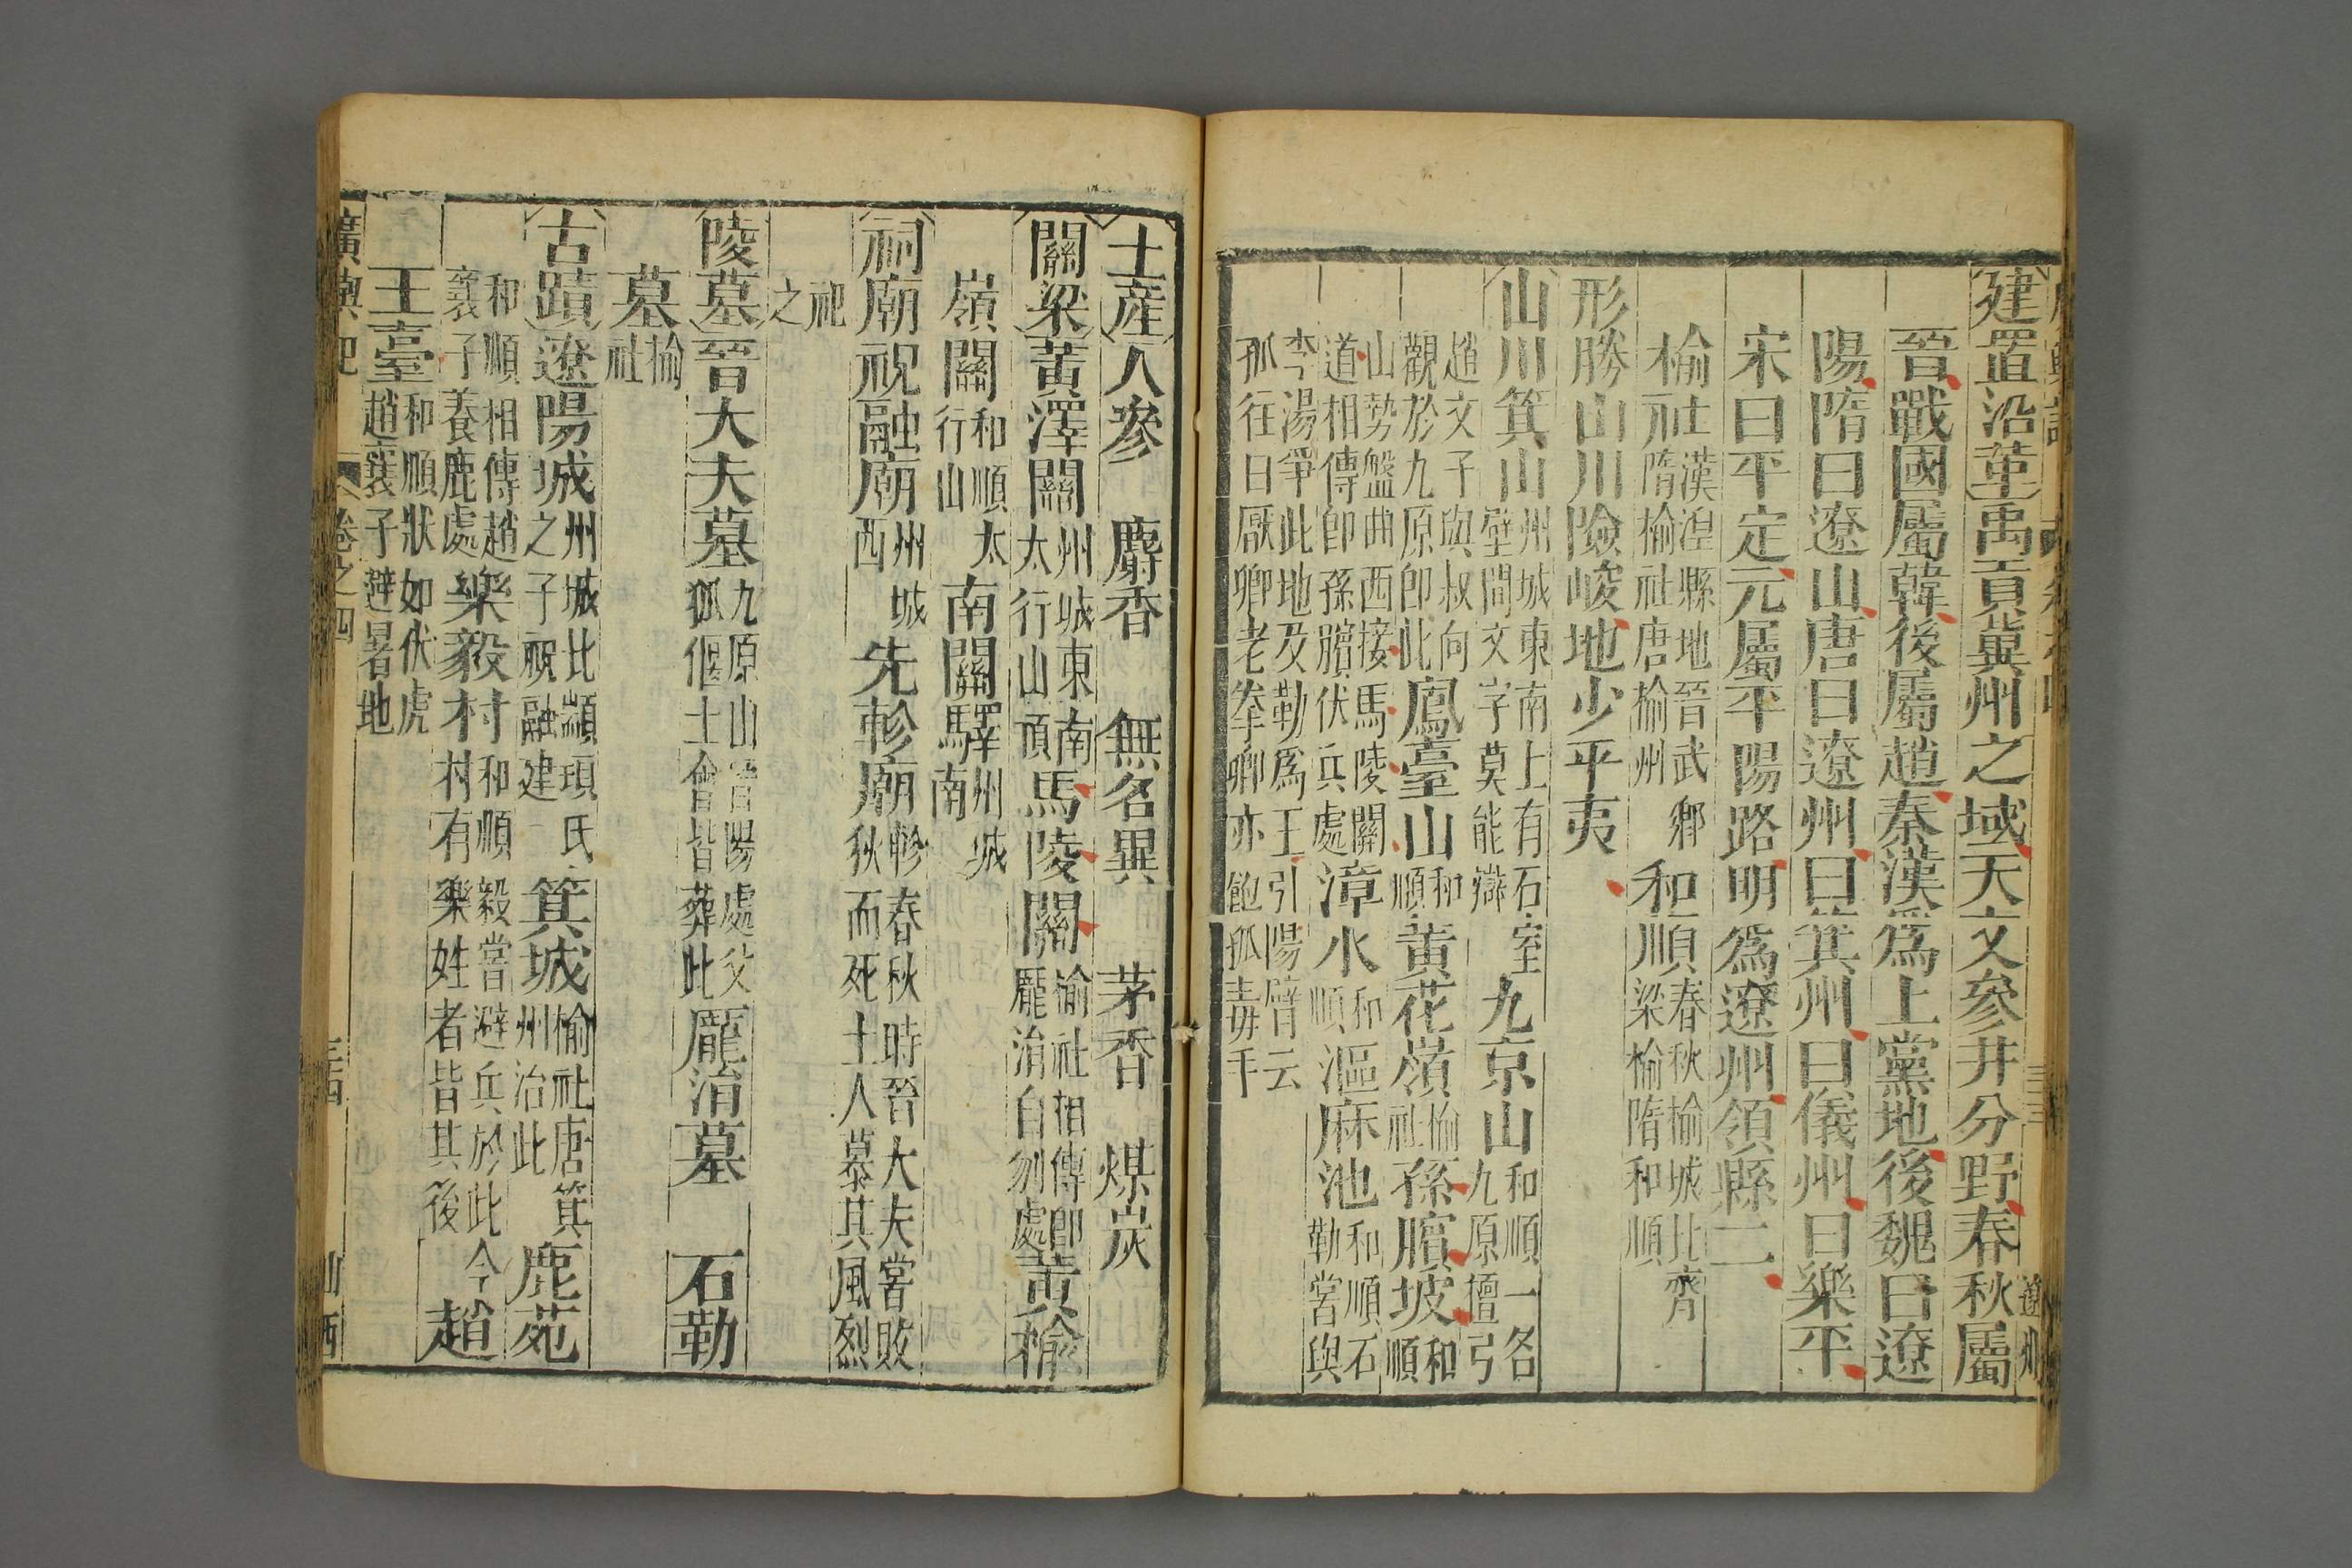 建置沿革禹貢冀州之域天文參井分野春秋屬
晉戰國屬韓後屬趙秦漢爲上黨地後魏曰遼
陽隋曰遼山唐曰遼州曰箕州曰儀州曰樂平
宋曰平定元屬平陽路明爲遼州領縣二
榆社漢湼縣地晉武鄉隋榆社唐榆州和順春秋榆城北齊梁榆隋和順
形勝山川險峻地少平夷
山川箕山州城東南上有石室壁間文字莫能辯九京山和順一名九原檀弓
趙文子與叔向觀於九原卽此鳳臺山和順黃花嶺榆社孫臏坡和順
山勢盤曲西接馬陵關道相傳卽孫臏伏兵處漳水和順漚麻池和順石勒嘗與
李湯爭此地及勒爲王引陽臂云孤往日厭卿老拳卿亦飽孤毒手
遼州
土產人參 麝香 無名異 茅香 煤炭
關梁黃澤關州城東南太行山頂馬陵關榆社相傳卽龐涓自刎處黃榆
嶺關和順太行山南關驛州城南
祠廟祝融廟州城西先軫廟軫春秋時晉大夫嘗敗狄而死土人慕其風烈
祀之
陵墓晉大夫墓九原山晉陽處父狐偃士會皆葬此龐涓墓 石勒
墓榆社
古蹟遼陽城州城北顓頊氏之子祝融建箕城榆社唐箕州治此鹿苑
和順相傳趙襄子養鹿處樂毅村和順毅嘗避兵於此今村有樂姓者皆其後趙
王臺和順狀如伏虎趙襄子避暑地
廣輿記 卷之四 三四 山西